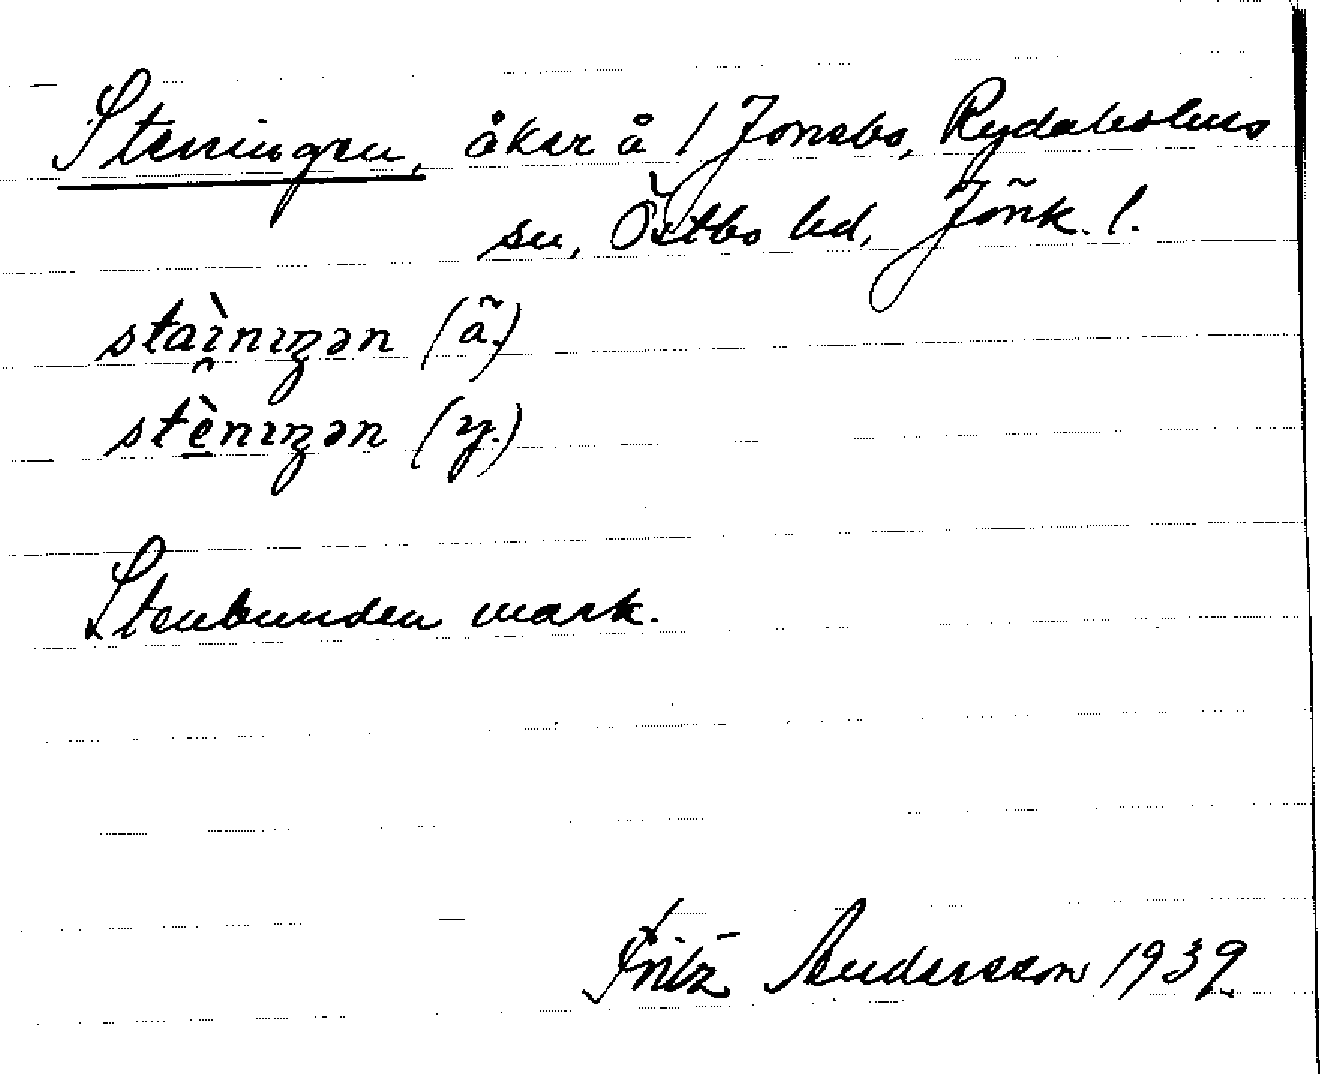 Steningen, åker å 1 Jonsbo, Rydaholms
sn, Östbo hd, Jönk. l.
staì̯nıŋən (ä.)
stènıŋən (y.)
Stenbunden mark.
Fritz Andersson 1939.